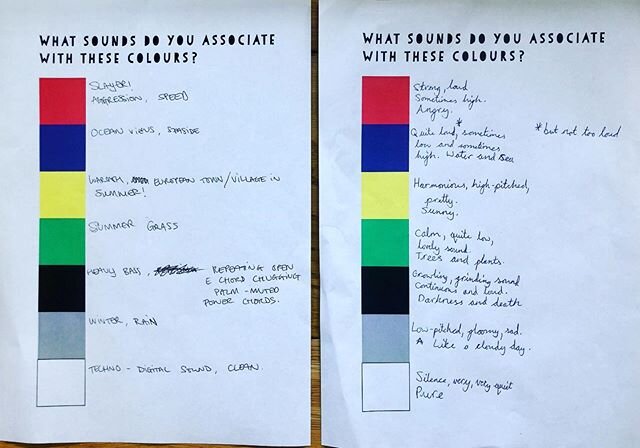 WHAT SOUNDS DO YOU ASSOCIATE
WITH THESE COLOURS?
SLAYER!
AGGRESSION, SPEED
OCEAN VIEWS, SEASIDE
WARMTH, EUROPEAN TOWN/VILLAGE IN
SUMMER!
SUMMER GRASS
HEAVY BASS, REPEATING OPEN
E CHORD CHUGGING
PALM-MUTED
POWER CHORDS.
WINTER, RAIN
TECHNO - DIGITAL SOUND, CLEAN.
WHAT SOUNDS DO YOU ASSOCIATE
WITH THESE COLOURS?
Strong, loud
Sometimes high.
Angry.
Quite loud,* sometimes
low and sometimes
high. Water and sea
*but not too loud
Harmonious, high-pitched,
pretty.
Sunny.
Calm, quite low,
lovely sound.
Trees and plants.
Growling, grinding sound
Continuous and loud.
Darkness and death
Low-pitched, gloomy, sad.
Like a cloudy day.
Silence, very, very quiet
Pure